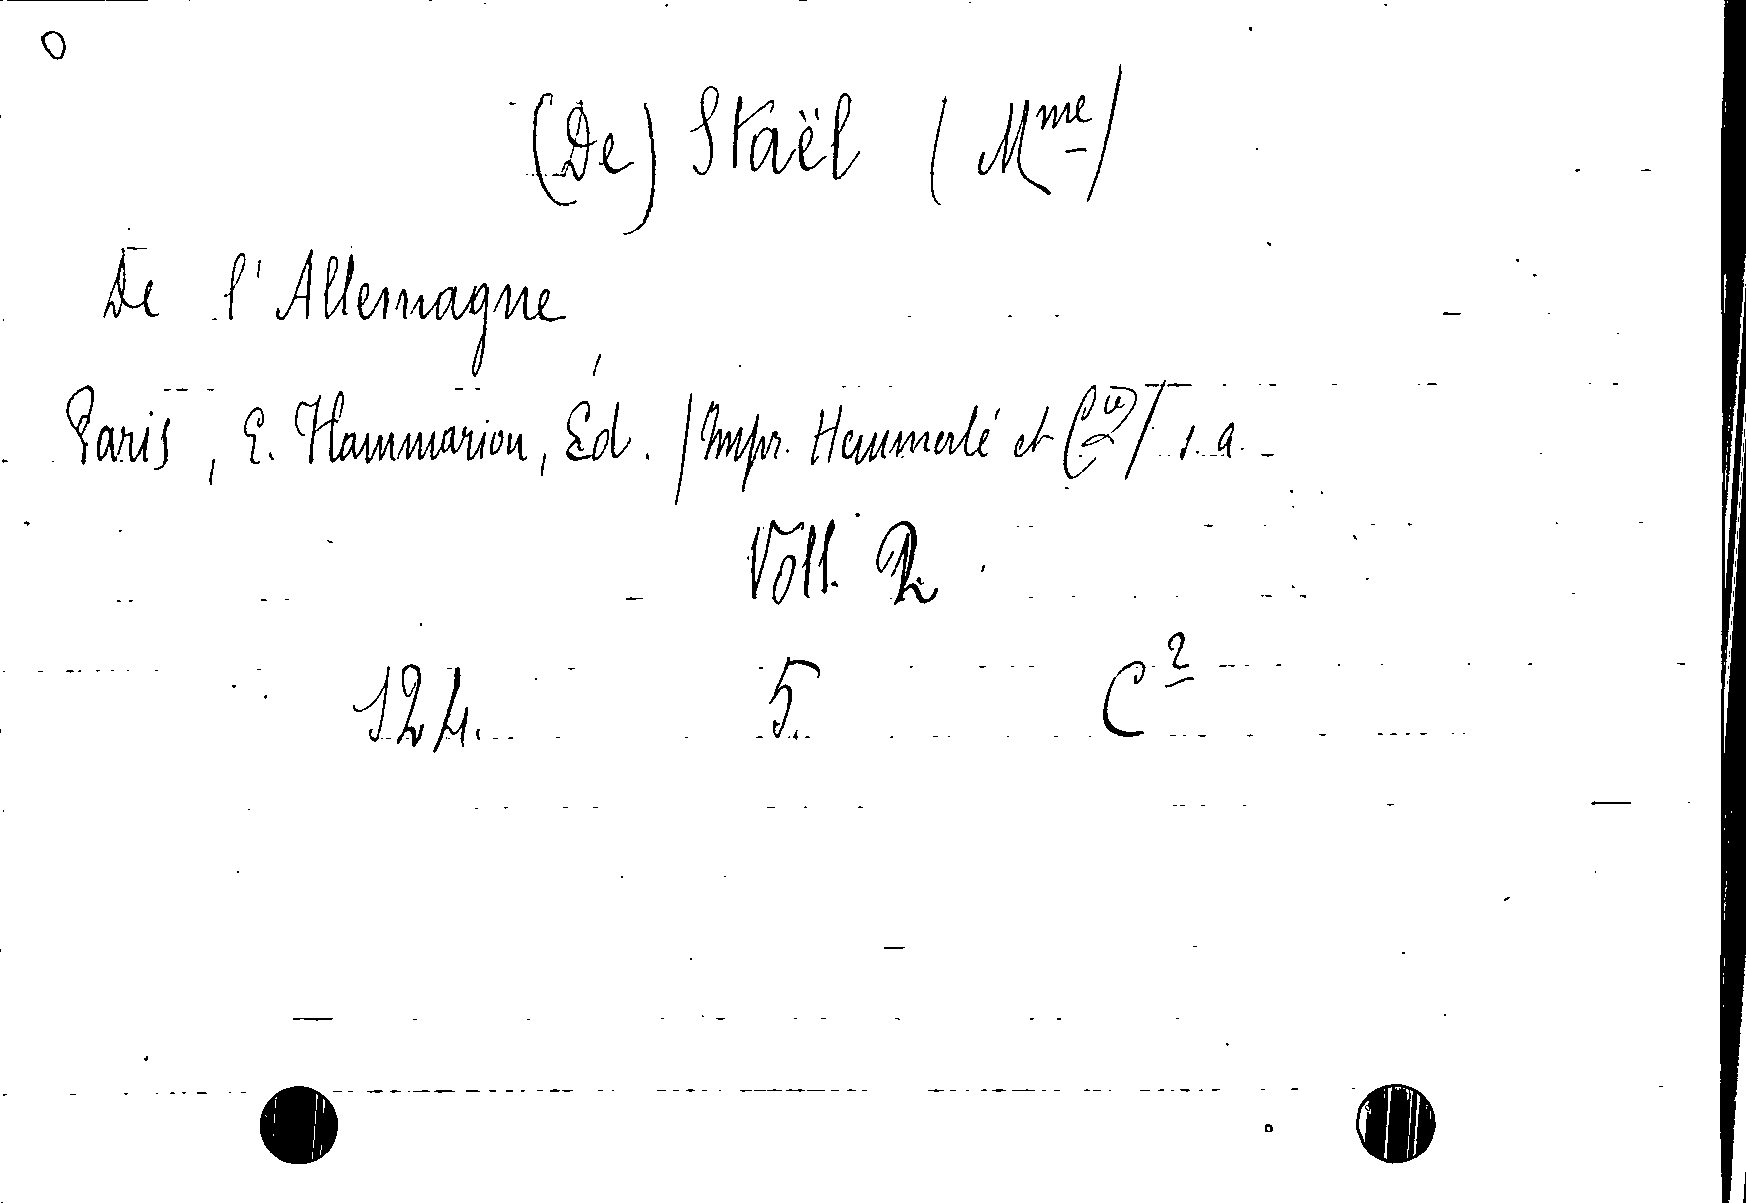 (De) Staël (Mme)
De l'Allemagne
Paris, E. Flammarion, Éd. (Impr. Hemmerlé et Cie) s. a.
Voll. 2
124. 5. C2